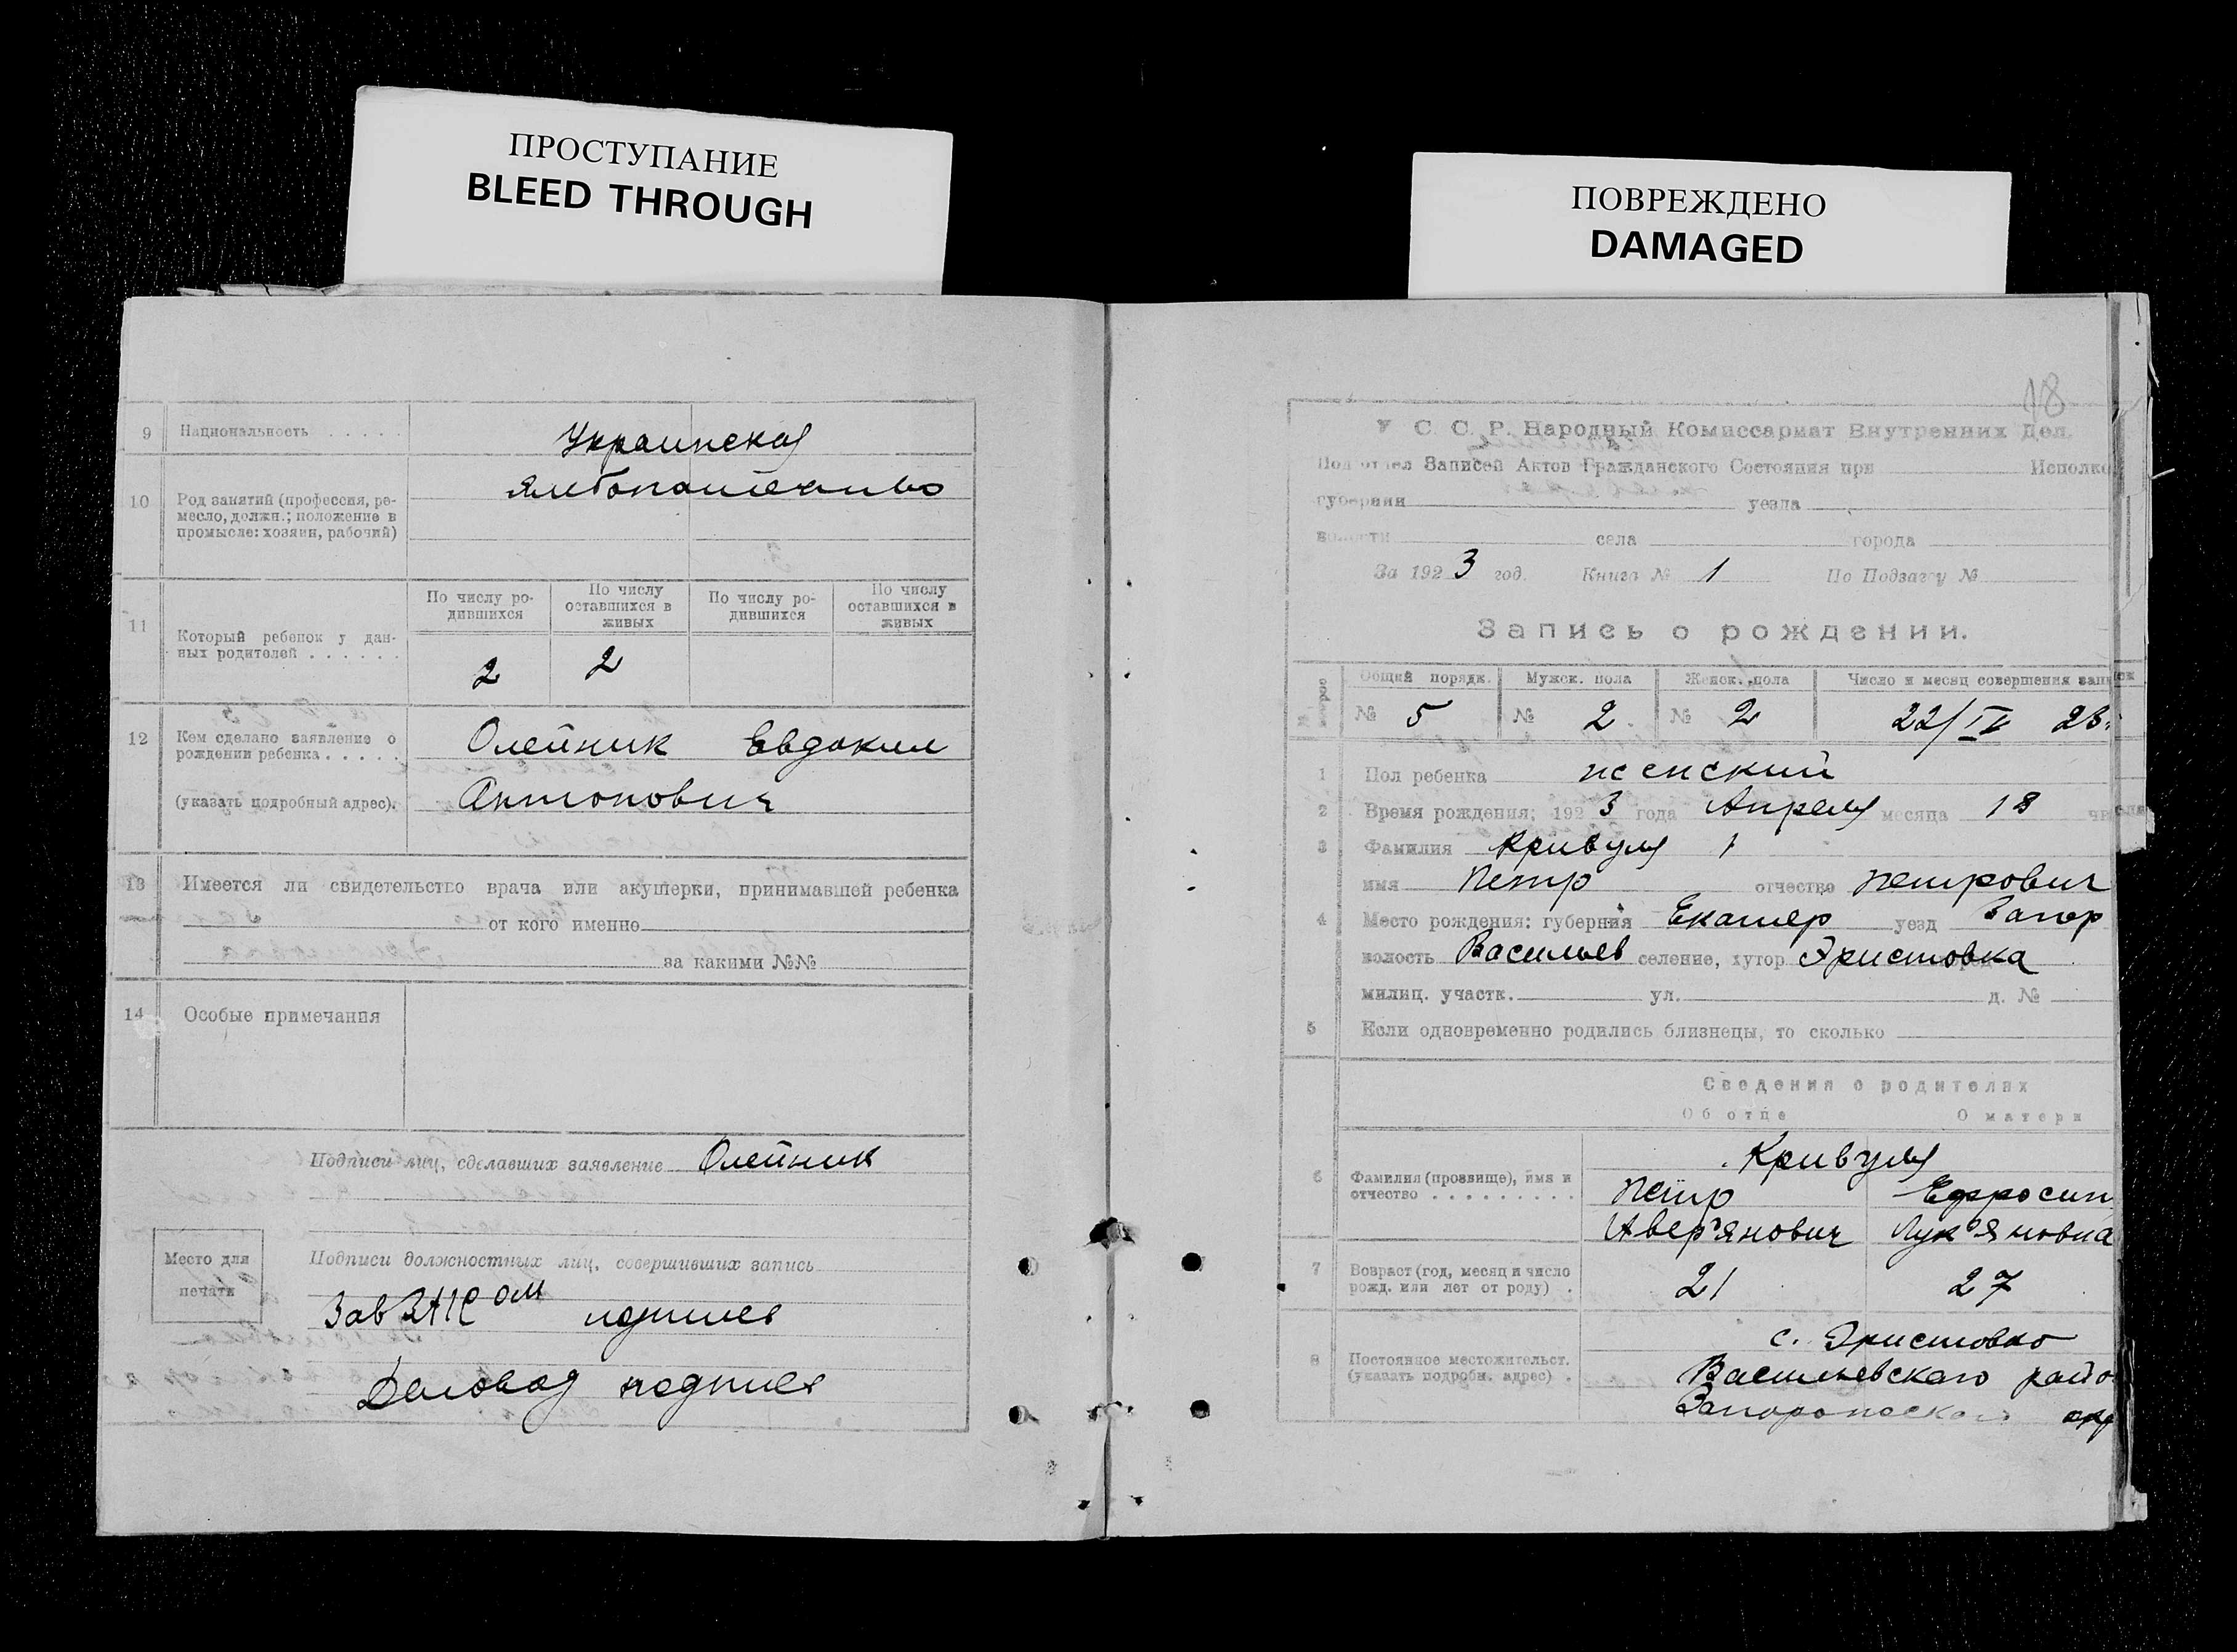 ПРОСТУПАНИЕ
BLEED THROUGH
9 Национальность . . . . . Украинская
10 Род занятий (профессия, ре-
месло, должн.; положение в
промысле: хозяин, рабочий)
11 Который ребенок у дан-
ных родителей . . . . . .
По числу ро-
дившихся
По числу
оставшихся в
живых
По числу ро-
дившихся
По числу
оставшихся в
живых
2 2
12 Кем сделано заявление о
рождении ребенка . . . . .
(указать подробный адрес).
Олейник Евдоким
Антонович
13 Имеется ли свидетельство врача или акушерки, принимавшей ребенка
от кого именно
за какими №№
14 Особые примечания
Подписи лиц, сделавших заявление Олейник
Место для
печати
Подписи должностных лиц, совершивших запись
Зав ЗАГСом подпись
Деловод подпись
ПОВРЕЖДЕНО
DAMAGED
18
У С. С. Р. Народный Комиссариат Внутренних Дел.
Подотдел Записей Актов Гражданского Состояния при Исполко
губернии уезда
волости села города
За 1923 год. Книга № 1 По Подзагсу №
Запись о рождении.
Общий порядк. Мужск. пола Женск. пола Число и месяц совершения запи
№ 5 № 2. № 2 22/IV 23.
1 Пол ребенка женский
2 Время рождения; 1923 года Апреля месяца 18 чи
3 Фамилия Кривуля
имя Петр отчество Петрович
4 Место рождения: губерния Екатер уезд Запор
волость Васильев селение, хутор Эристовка
милиц. участк. ул. д. №
5 Если одновременно родились близнецы, то сколько
Сведения о родителях
Об отце О матери
6 Фамилия (прозвище), имя и
отчество . . . . . . . . .
Кривуля
Петр Ефросин
Авер'янович Лук'яновна
7 Возраст (год, месяц и число
рожд. или лет от роду) .
21 27
8 Постоянное местожительст.
(указать подробн. адрес) .
с. Эристовко
Васильевского райо
Запорожского окр